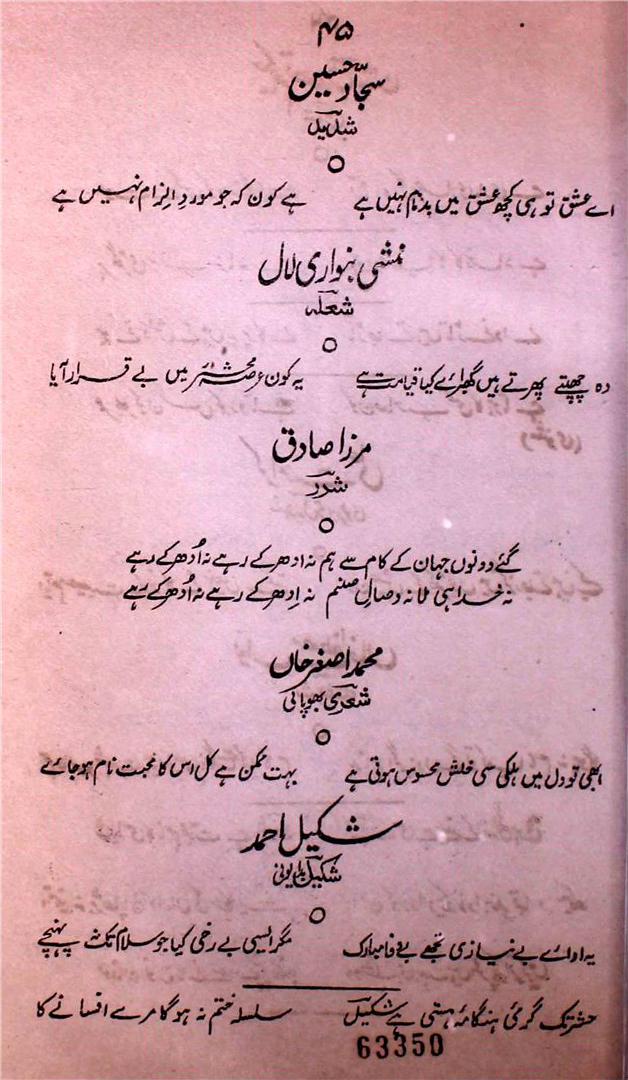 ۴۵
سجّاد حسین
شدید
اے عشق تو ہی کچھ عشق میں بدنام نہیں ہے ہے کون کہ جو موردِ الزام نہیں ہے
منشی بنواری لال
شعلہ
وہ چھپتے پھرتے ہیں گھبرائے کیا قیامت ہے یہ کون عرصۂ محشر میں بے قرار آیا
مرزا صادق
شرر
گئے دونوں جہان کے کام سے ہم نہ ادھر کے رہے نہ اُدھر کے رہے
نہ خدا ہی ملا نہ وصالِ صنم نہ اِدھر کے رہے نہ اُدھر کے رہے
محمد اصغر خاں
شعری بھوپالی
ابھی تو دل میں ہلکی سی خلش محسوس ہوتی ہے بہت ممکن ہے کل اس کا محبت نام ہوجائے
شکیل احمد
شکیل بدایونی
یہ ادائے بے نیازی تجھے بے وفا مبارک مگر ایسی بے رخی کیا جو سلام تک نہ پہنچے
حشر تک گرمئ ہنگامۂ ہستی ہے شکیل سلسلہ ختم نہ ہوگا مرے افسانے کا
63350